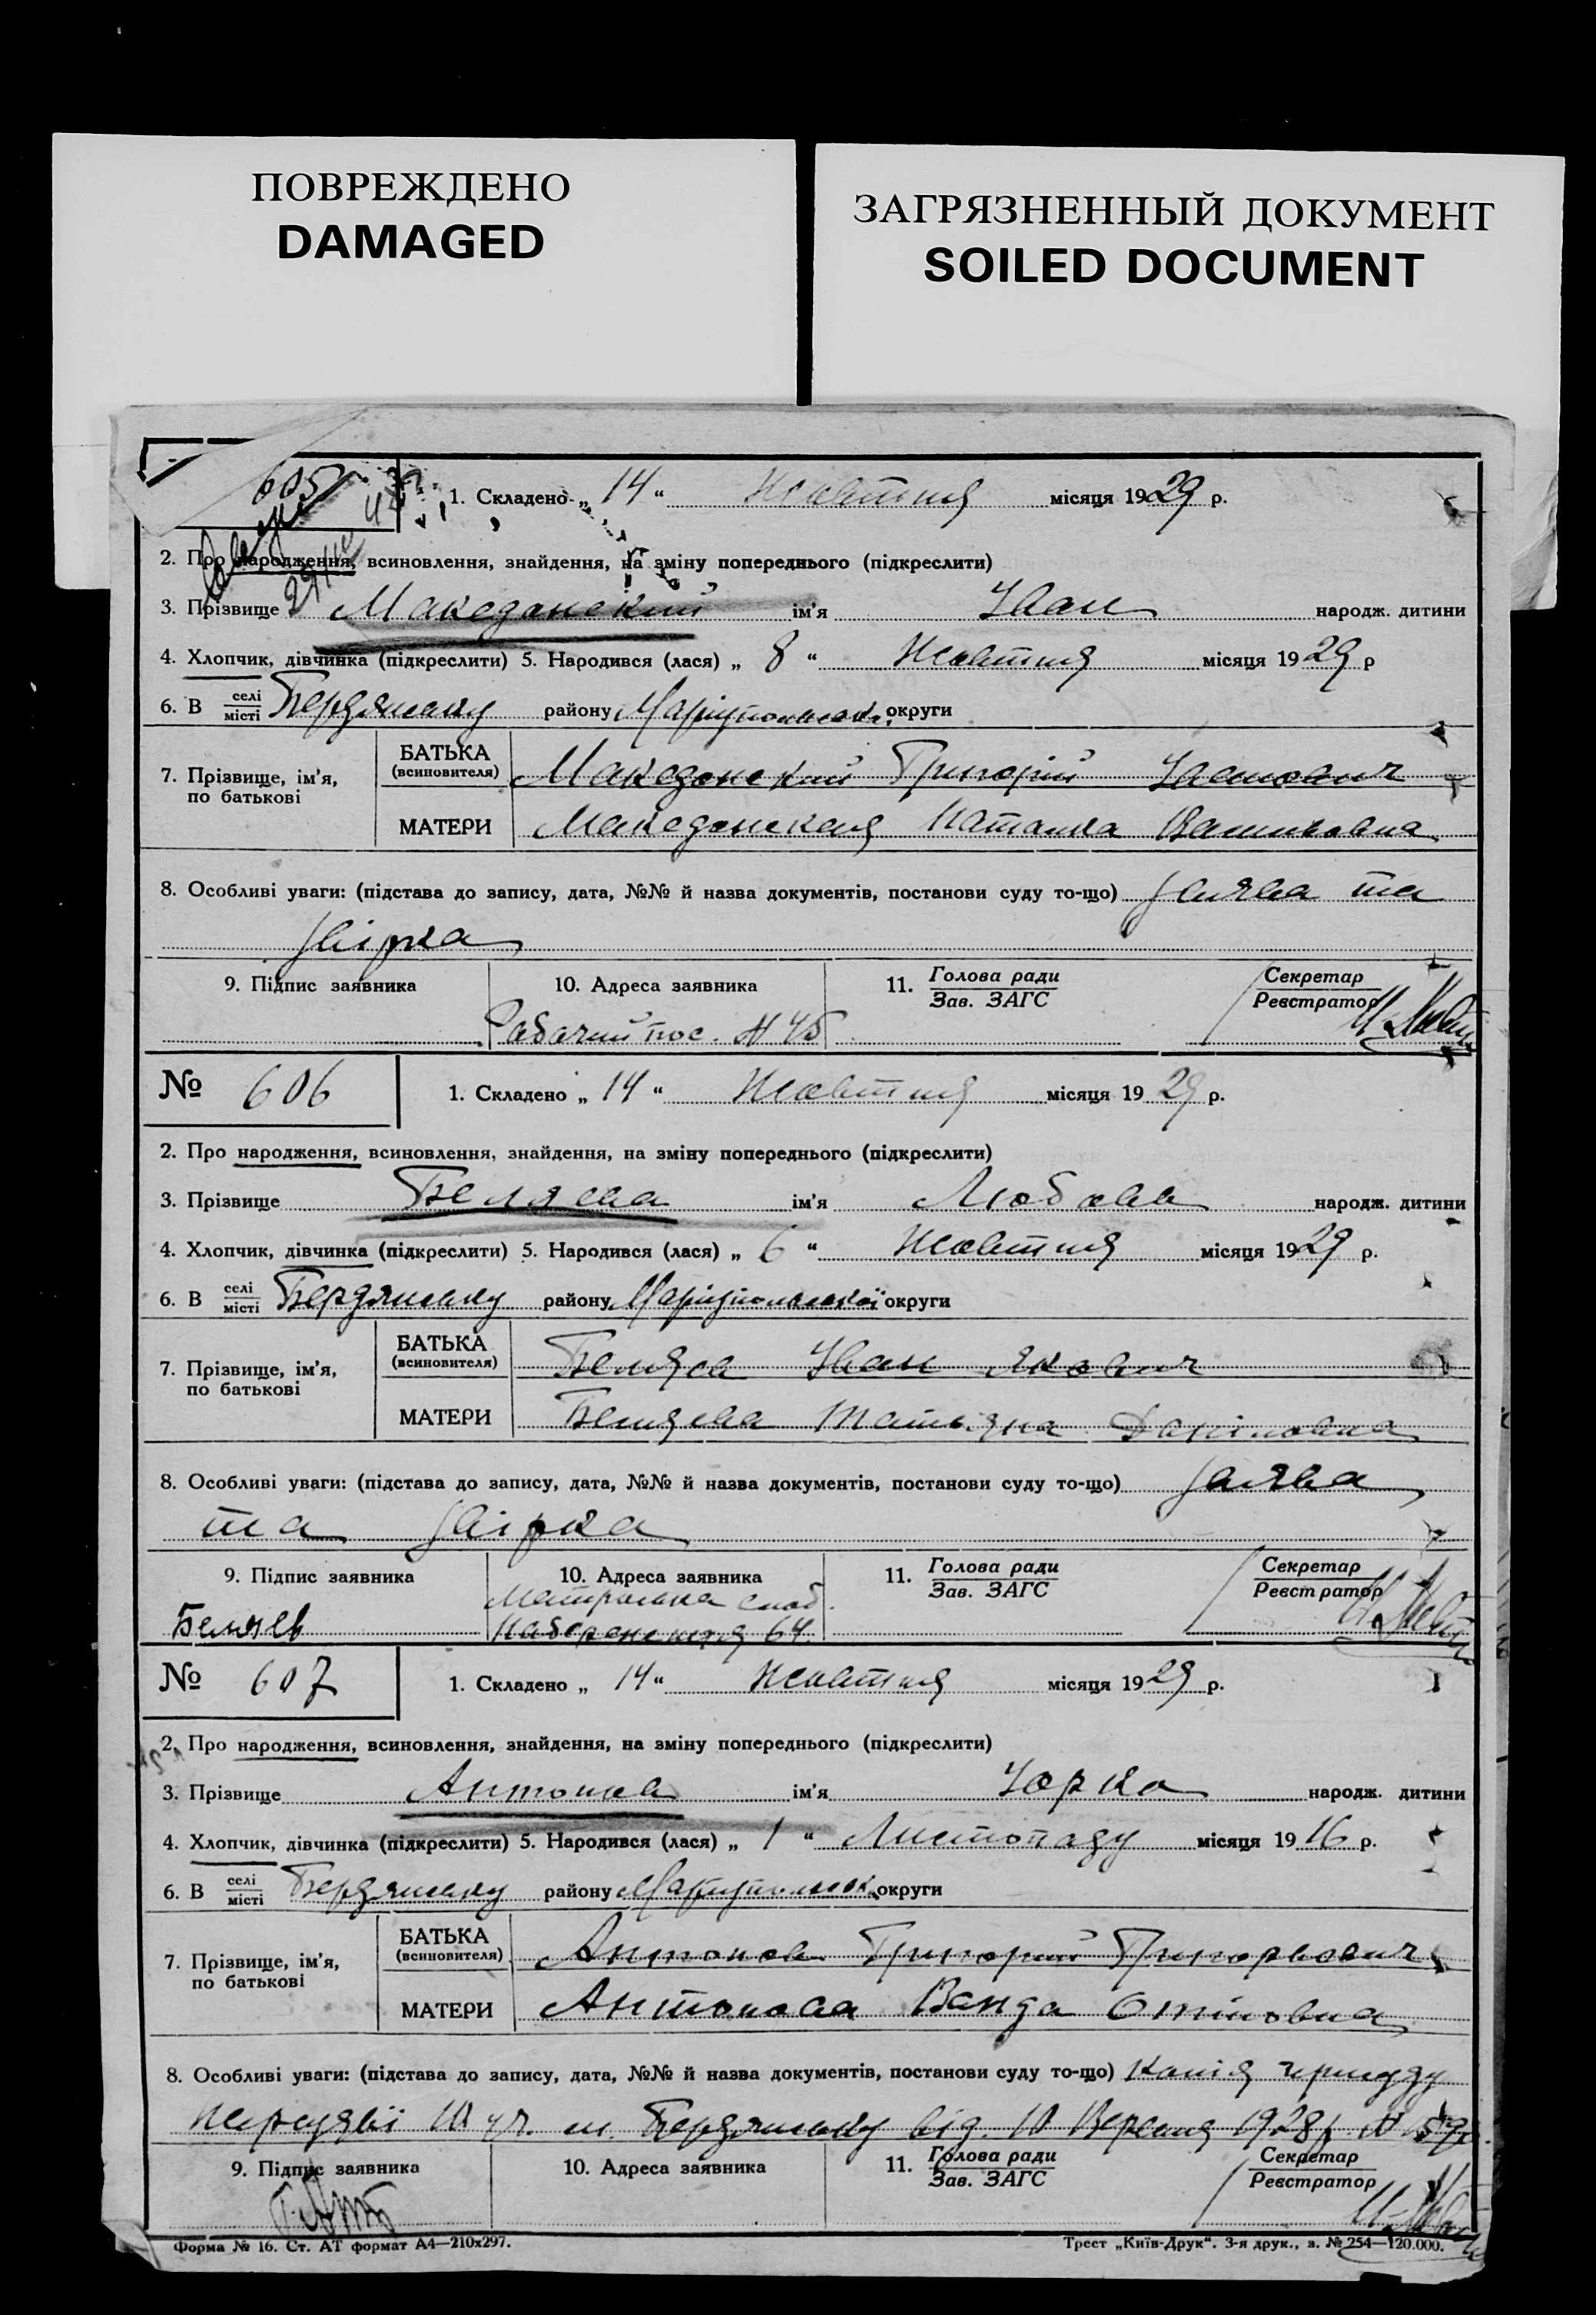 ПОВРЕЖДЕНО
DAMAGED
ЗАГРЯЗНЕННЫЙ ДОКУМЕНТ
SOILED DOCUMENT
605
1. Складено „ 14 “ Жовтня місяця 1929 р.
2. Про народження, всиновлення, знайдення, на зміну попереднього (підкреслити)
3. Прізвище Македонский ім’я Іван народж. дитини
4. Хлопчик, дівчинка (підкреслити) 5. Народився (лася) „ 8 “ Жовтня місяця 1929 р
6. В селі місті Бердянську району Маріупольськ. округи
7. Прізвище, ім’я, по батькові
БАТЬКА (всиновителя) Македонский Григорій Іванович
МАТЕРИ Македонская Наталка Васильовна
8. Особливі уваги: (підстава до запису, дата, №№ й назва документів, постанови суду то-що) Заява та
Звірка
9. Підпис заявника 10. Адреса заявника 11. Голова ради Зав. ЗАГС Секретар Реєстратор
Рабочий пос. № 45
№ 606 1. Складено „ 14 “ Жовтня місяця 1929 р.
2. Про народження, всиновлення, знайдення, на зміну попереднього (підкреслити)
3. Прізвище Беляева ім’я Любовь народж. дитини
4. Хлопчик, дівчинка (підкреслити) 5. Народився (лася) „ 6 “ Жовтня місяця 1929 р.
6. В селі місті Бердянську району Маріупольської округи
7. Прізвище, ім’я, по батькові
БАТЬКА (всиновителя) Беляев Іван Якович
МАТЕРИ Беляева Татьяна Даніловна
8. Особливі уваги: (підстава до запису, дата, №№ й назва документів, постанови суду то-що) Заява
та Звірка
9. Підпис заявника 10. Адреса заявника 11. Голова ради Зав. ЗАГС Секретар Реєстратор
Беляев
64
№ 607 1. Складено „ 14 “ Жовтня місяця 1929 р.
2. Про народження, всиновлення, знайдення, на зміну попереднього (підкреслити)
3. Прізвище Антонов ім’я Юрко народж. дитини
4. Хлопчик, дівчинка (підкреслити) 5. Народився (лася) „ 1 “ Листопаду місяця 1916 р.
6. В селі місті Бердянську району Маріупольськ. округи
7. Прізвище, ім’я, по батькові
БАТЬКА (всиновителя) Антонов Григорий Григорьович
МАТЕРИ Антонова Ванда
8. Особливі уваги: (підстава до запису, дата, №№ й назва документів, постанови суду то-що) Копія
м. Бердянську від 10 Вересня 1928 р. №
9. Підпис заявника 10. Адреса заявника 11. Голова ради Зав. ЗАГС Секретар Реєстратор
Форма № 16. Ст. АТ формат А4—210х297.
Трест „Київ-Друк“. 3-я друк., з. № 254—120.000.